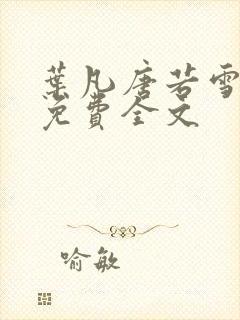 葉凡唐若雪
免費全文
喻敏